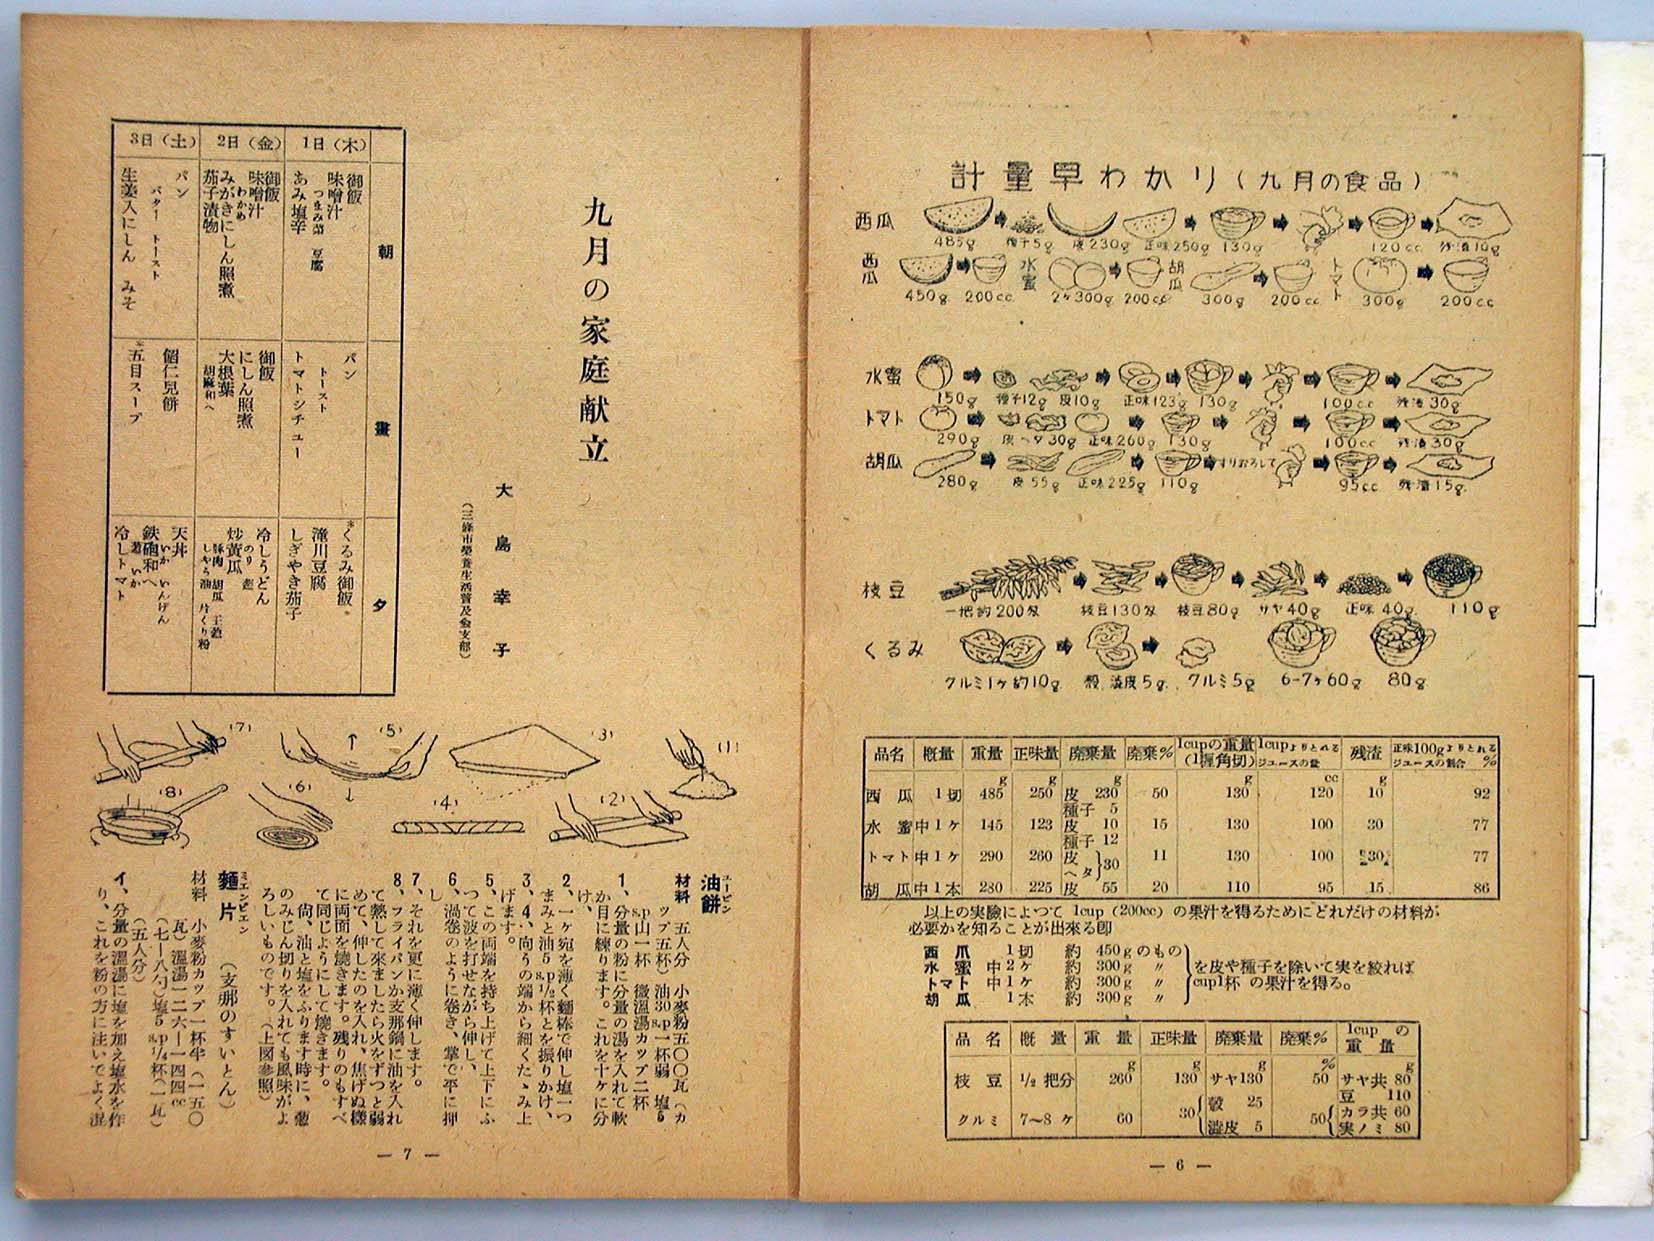 計量早わかり（九月の食品）
西瓜
485g 種子5g 皮230g 正味250g 130g 120cc 残渣10g
西瓜 450g 200cc 水蜜 2ケ300g 200cc 胡瓜 300g 200cc トマト 300g 200cc
水蜜
150g 種子12g 皮10g 正味123g 130g 100cc 残渣30g
トマト
290g 皮ヘタ30g 正味260g 130g 100cc 残渣30g
胡瓜 すりおろして
280g 皮55g 正味225g 110g 95cc 残渣15g
枝豆
一把約200匁 枝豆130匁 枝豆80g サヤ40g 正味40g 110g
くるみ
クルミ1ケ約10g 殻渋皮5g クルミ5g 6-7ケ60g 80g
品名 概量 重量 正味量 廃棄量 廃棄% 1cupの重量(1握角切) 1cupよりとれるジユースの量 残渣 正味100gよりとれるジユースの割合 %
g g g g cc g
西瓜 1切 485 250 皮 230 50 130 120 10 92
種子 5
水蜜 中1ケ 145 123 皮 10 15 130 100 30 77
種子 12
トマト 中1ケ 290 260 皮ヘタ}30 11 130 100 30 77
胡瓜 中1本 280 225 皮 55 20 110 95 15 86
以上の実驗によつて 1cup（200cc）の果汁を得るためにどれだけの材料が
必要かを知ることが出來る卽
西爪 1切 約 450gのもの
水蜜 中2ケ 約 300g 〃
トマト 中1ケ 約 300g 〃
胡瓜 1本 約 300g 〃
を皮や種子を除いて実を絞れば
cup1杯 の果汁を得る。
品名 概量 重量 正味量 廃棄量 廃棄% 1cup の重量
g g g % g
枝豆 1/2 把分 260 130 サヤ130 50 サヤ共 80
豆 110
クルミ 7〜8ケ 60 30 殼 25 50 カラ共 60
澁皮 5 実ノミ 80
— 6 —
九月の家庭献立
大島幸子
（三條市榮養生活普及会支部）
朝 晝 夕
1日（木）
御飯
味噌汁 つまみ菜 豆腐
あみ塩辛
パン
トースト
トマトシチユー
*くるみ御飯
滝川豆腐
しぎやき茄子
2日（金）
御飯
味噌汁 わかめ
みがきにしん照煮
茄子漬物
御飯
にしん照煮
大根葉
胡麻和へ
冷しうどん
のり 葱
炒黃瓜
豚肉 胡瓜 玉葱
しやう油 片くり粉
3日（土）
パン
バタートースト
生姜入にしん みそ
餡仁兒餅
*五目スープ
天丼
いか いんげん
鉄砲和へ
葱 いか
冷しトマト
（1）
（2）
（3）
（4）
（5）
（6）
（7）
（8）
油餅 ユーピン
材料 五人分 小麥粉五〇〇瓦（カ
ツプ五杯）油30 s.p一杯弱 塩5
s.p山一杯 微溫湯カツプ二杯
1、分量の粉に分量の湯を入れて軟
か目に練ります。これを十ケに分
け、
2、一ケ宛を薄く麵棒で伸し塩一つ
まみと油5 s.p1/2杯とを振りかけ、
3、4、向うの端から細くたゝみ上
げます。
5、この両端を持ち上げて上下にふ
つて波を打せながら伸し、
6、渦卷のように卷き、掌で平に押
し
7、それを更に薄く伸します。
8、フライパンか支那鍋に油を入れ
て熱して來ましたら火をずつと弱
めて、伸したのを入れ、焦げぬ樣
に両面を燒きます。残りのもすべ
て同じようにして燒きます。
尙、油と塩をふります時に、葱
のみじん切りを入れても風味がよ
ろしいものです。（上図参照）
麵片 ミエンピエン （支那のすいとん）
材料 小麥粉カツプ一杯半（一五〇
瓦）溫湯一二六—一四四cc
（七—八勺）塩5 s.p1/4杯（一瓦）
（五人分）
イ、分量の溫湯に塩を加え塩水を作
り、これを粉の方に注いでよく混
— 7 —